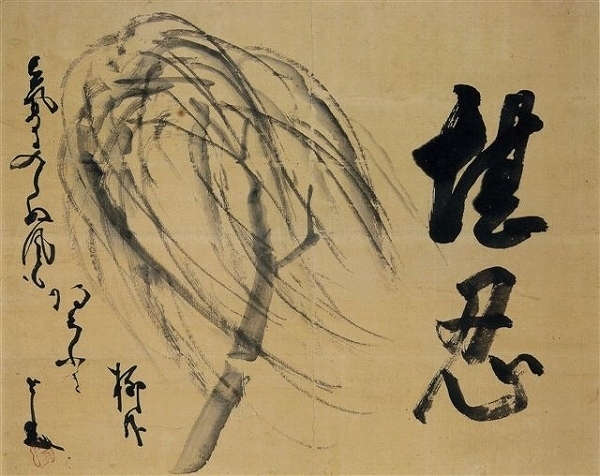 堪忍
氣に入らぬ風も
あろふに
柳